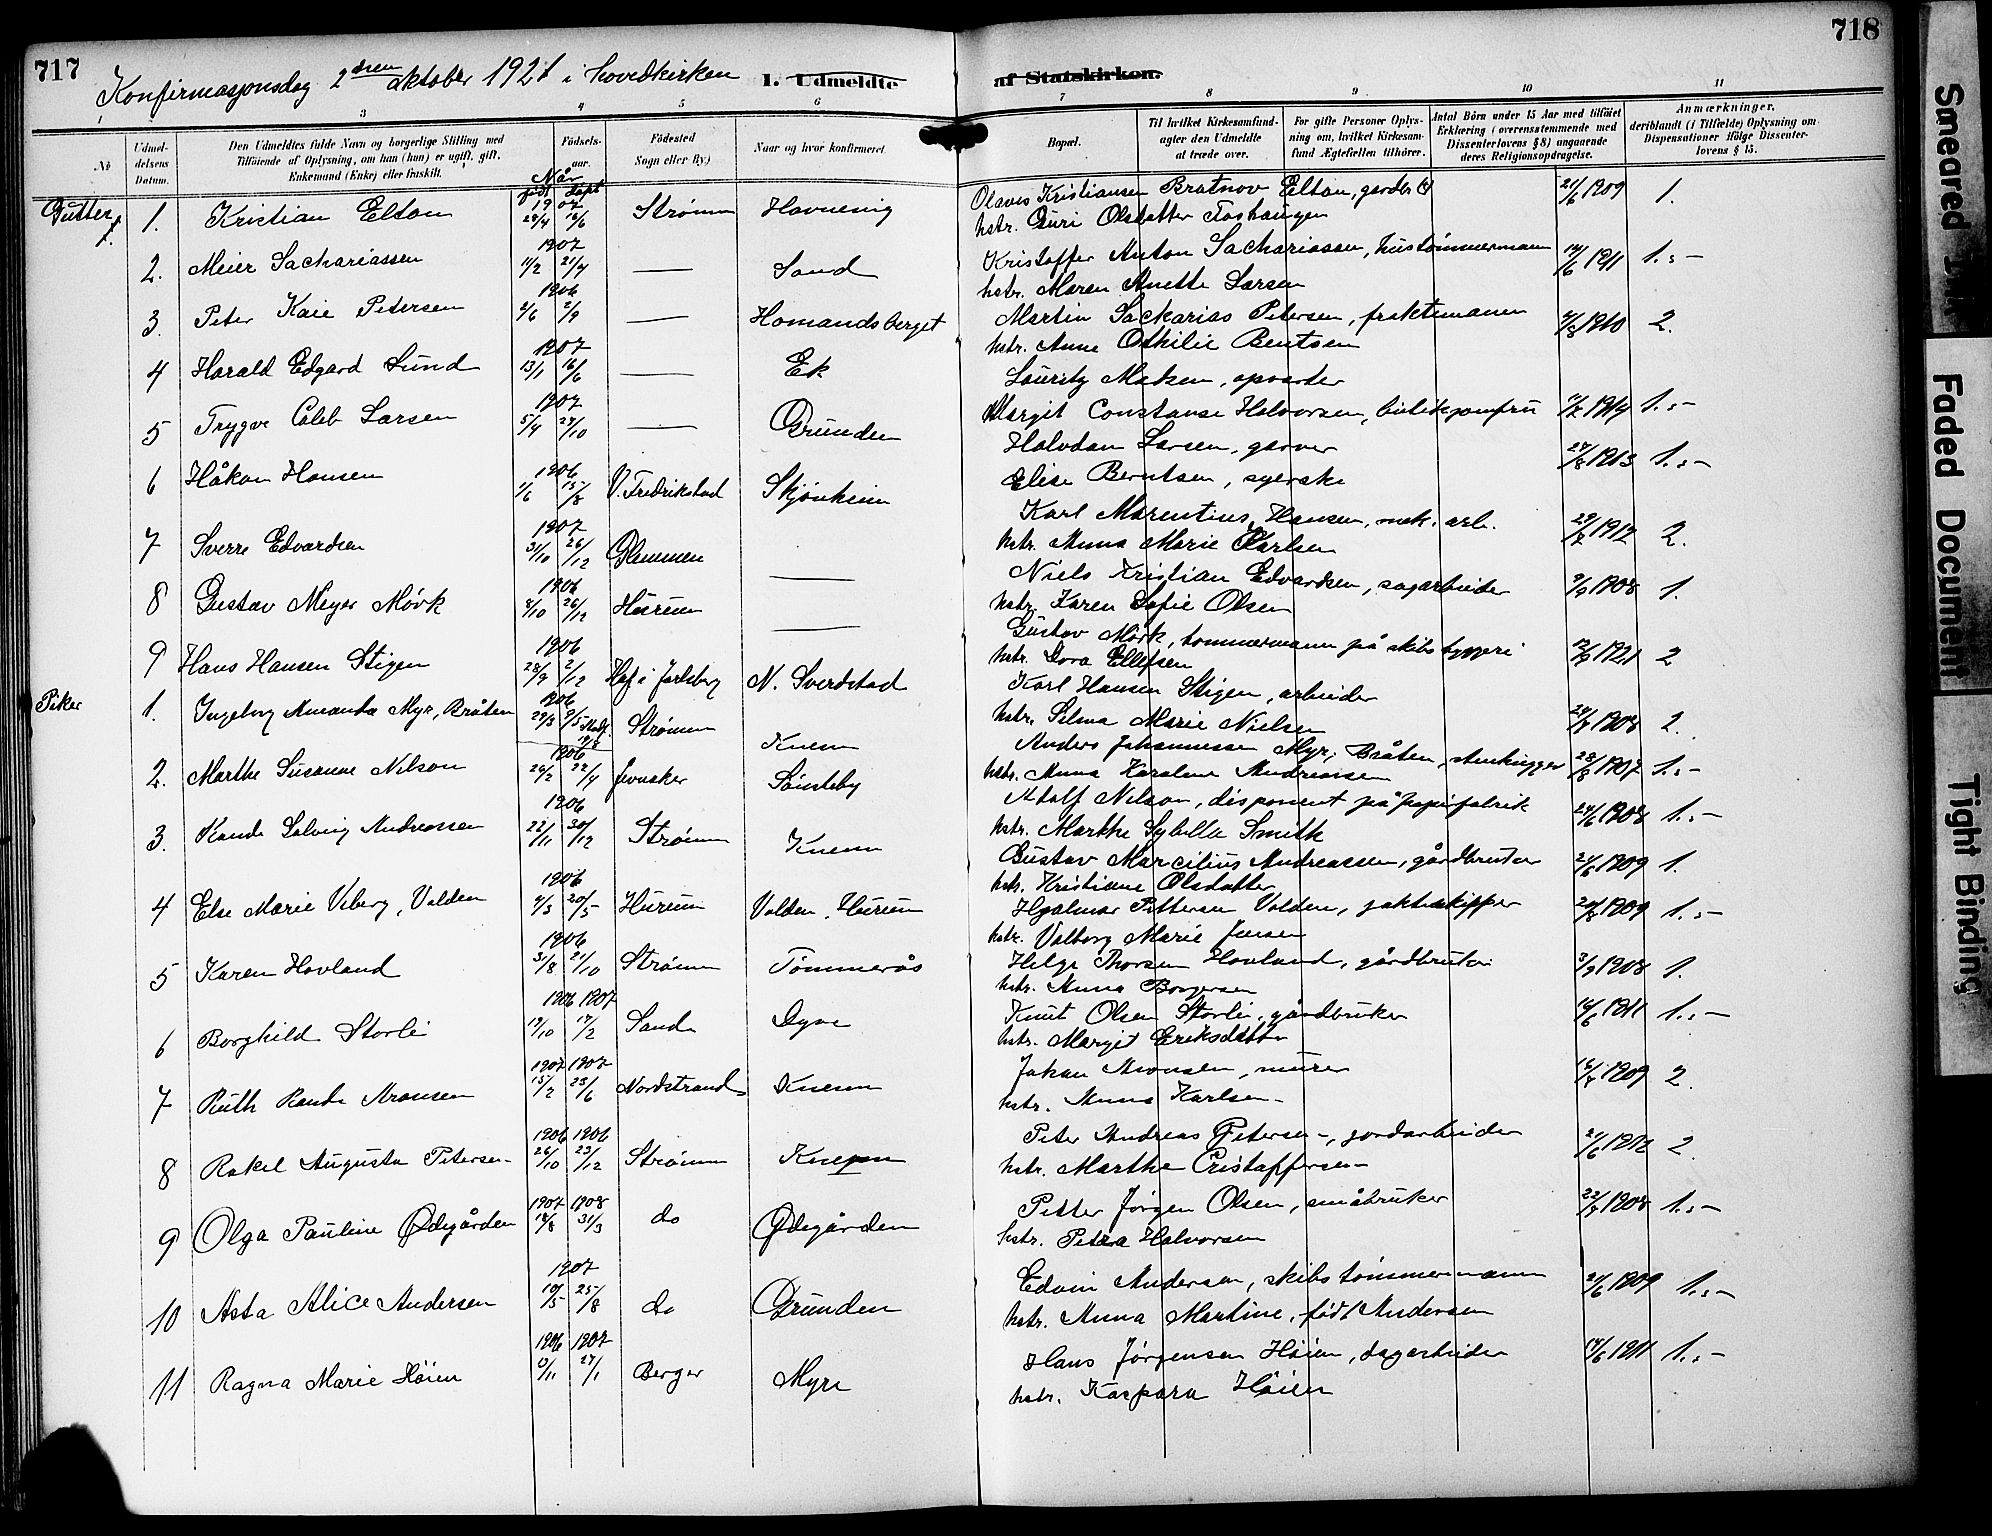 717
718
Konfirmasjonsdag 2den oktober 1921 i hovedkirken
1. Udmeldte af Statskirken.
1 3 4 5 6 7 8 9 10 11
No
Udmel-
delsens
Datum.
Den Udmeldtes fulde Navn og borgerlige Stilling med
Tilføiende af Oplysning, om han (hun) er ugift, gift,
Enkemand (Enke) eller fraskilt.
Fødsels-
aar.
Når
født døpt
Fødested
Sogn eller By)
Naar og hvor konfirmeret
Bopæl.
Til hvilket Kirkesamfund-
agter den Udmeldte
at træde over.
For gifte Personer Oplys-
ning om, hvilket Kirkesam-
fund Ægtefællen tilhører.
Antal Børn under 15 Aar med tilføiet
Erklæring (overensstemmende med
Dissenterlovens § 8) angaaende
deres Religionsopdragelse.
Anmærkninger,
deriblandt (i Tilfælde) Oplysning om
Dispensationer ifølge Dissenter-
lovens § 15.
Gutter 1. Kristian Elton 1907 28/4 16/6 Strømm Havnevig Olaves Kristiansen Bratnov Elton, gardbr 21/6 1909 1.
hstr. Guri Olsdatter Foshaugen
2. Meier Sachariassen 1907 11/2 21/4 — Sand Kristoffer Anton Sachariassen, hustømmermann 14/6 1911 1.s-
hstr. Maren Anette Larsen
3. Peter Kaie Petersen 1906 2/6 2/9 — Homandsberget Martin Sackarias Petersen, fraktemann 1910 2.
hstr. Anne Othilie Bentsen
4 Harald Edgard Lund 1907 13/1 16/6 — Ek Lauritz Madsen, opvarter
Margit Constanse Halvorsen, butikjomfru 1914 1.s-
5 Trygve Caleb Larsen 1907 5/4 27/10 — Grunden Halvdan Larsen, garver 1913 1.s-
Elise Berntsen, syerske
6 Håkon Hansen 1906 1/6 15/8 V. Fredrikstad Skjønheim Karl Marentius Hansen, mek. arb. 1912 2.
hstr. Anna Marie Karlsen
7 Sverre Edvardsen 1907 31/10 26/12 Glemmen — Niels Kristian Edvardsen, sagarbeider 9/9 1908 1.
hstr. Karen Sofie Olsen
8 Gustav Meyer Mörk 1906 8/10 26/12 Hurum — Gustav Mörk, tømmermann på skibsbyggeri 1921 2
hstr. Dora Ellefsen
9 Hans Hansen Stigen 1906 28/9 2/12 Hof i Jarlsberg N. Sverdstad Karl Hansen Stigen, arbeider 1908 2.
hstr. Selma Marie Nielsen
Piker 1. Ingeborg Amanda Myr, Bråten 1906 29/3 9/5 Strømm Knem Anders Johannessen Myr, Bråten, stenhugger 1907 1.s-
hstr. Anna Karoline Andreassen
2. Marthe Susanne Nilson 1906 26/2 22/4 Jevnaker Sønsteby Adolf Nilson, disponent på papirfabrik 24/6 1908 1.s-
hstr. Marthe Sybilla Smith
3. Randi Solveig Andreassen 1906 22/11 30/12 Strømm Knem Gustav Marcilius Andreassen, gårdbruker 24/6 1909 1.
hstr. Kristiane Olsdatter
4 Else Marie Viberg, Volden 1906 4/3 20/5 Hurum Volden, Hurum Hjalmar Pettersen Volden, jakteskipper 1909 1.s-
hstr. Valborg Marie Jensen
5 Karen Hovland 1906 31/8 21/10 Strømm Tømmerås Helge Thorsen Hovland, gårdbruker 3/9 1908 1.
hstr. Anna Borgersen
6 Borghild Storli 1906 1907 19/10 17/2 Sande Dyve Knut Olsen Storli, gårdbruker 14/6 1911 1.s-
hstr. Margit Eriksdatter
7 Ruth Randi Aronsen 1907 1907 15/2 23/6 Nordstrand Knem Johan Aronsen, murer 1909 2.
hstr. Anna Karlsen
8 Rakel Augusta Petersen 1906 1906 26/10 23/12 Strømm Knem Peter Andreas Petersen, jordarbeider 21/6 1912 2.
hstr. Marthe Cristoffersen
9 Olga Pauline Ødegården 1907 1908 18/8 31/3 do Ødegården Petter Jørgen Olsen, småbruker 1908 1.s-
hstr. Petra Halvorsen
10 Asta Alice Andersen 1907 19/5 25/8 do Grunden Edvin Andersen, skibstømmermann 21/6 1909 1.s-
hstr. Anna Martine, født Andersen
11 Ragna Marie Høien 1906 1907 13/11 27/1 Berger Myre Hans Jørgensen Høien, dagarbeider 14/6 1911 1.s-
hstr. Kaspara Høien
Smeared Ink
Faded Document
Tight Binding